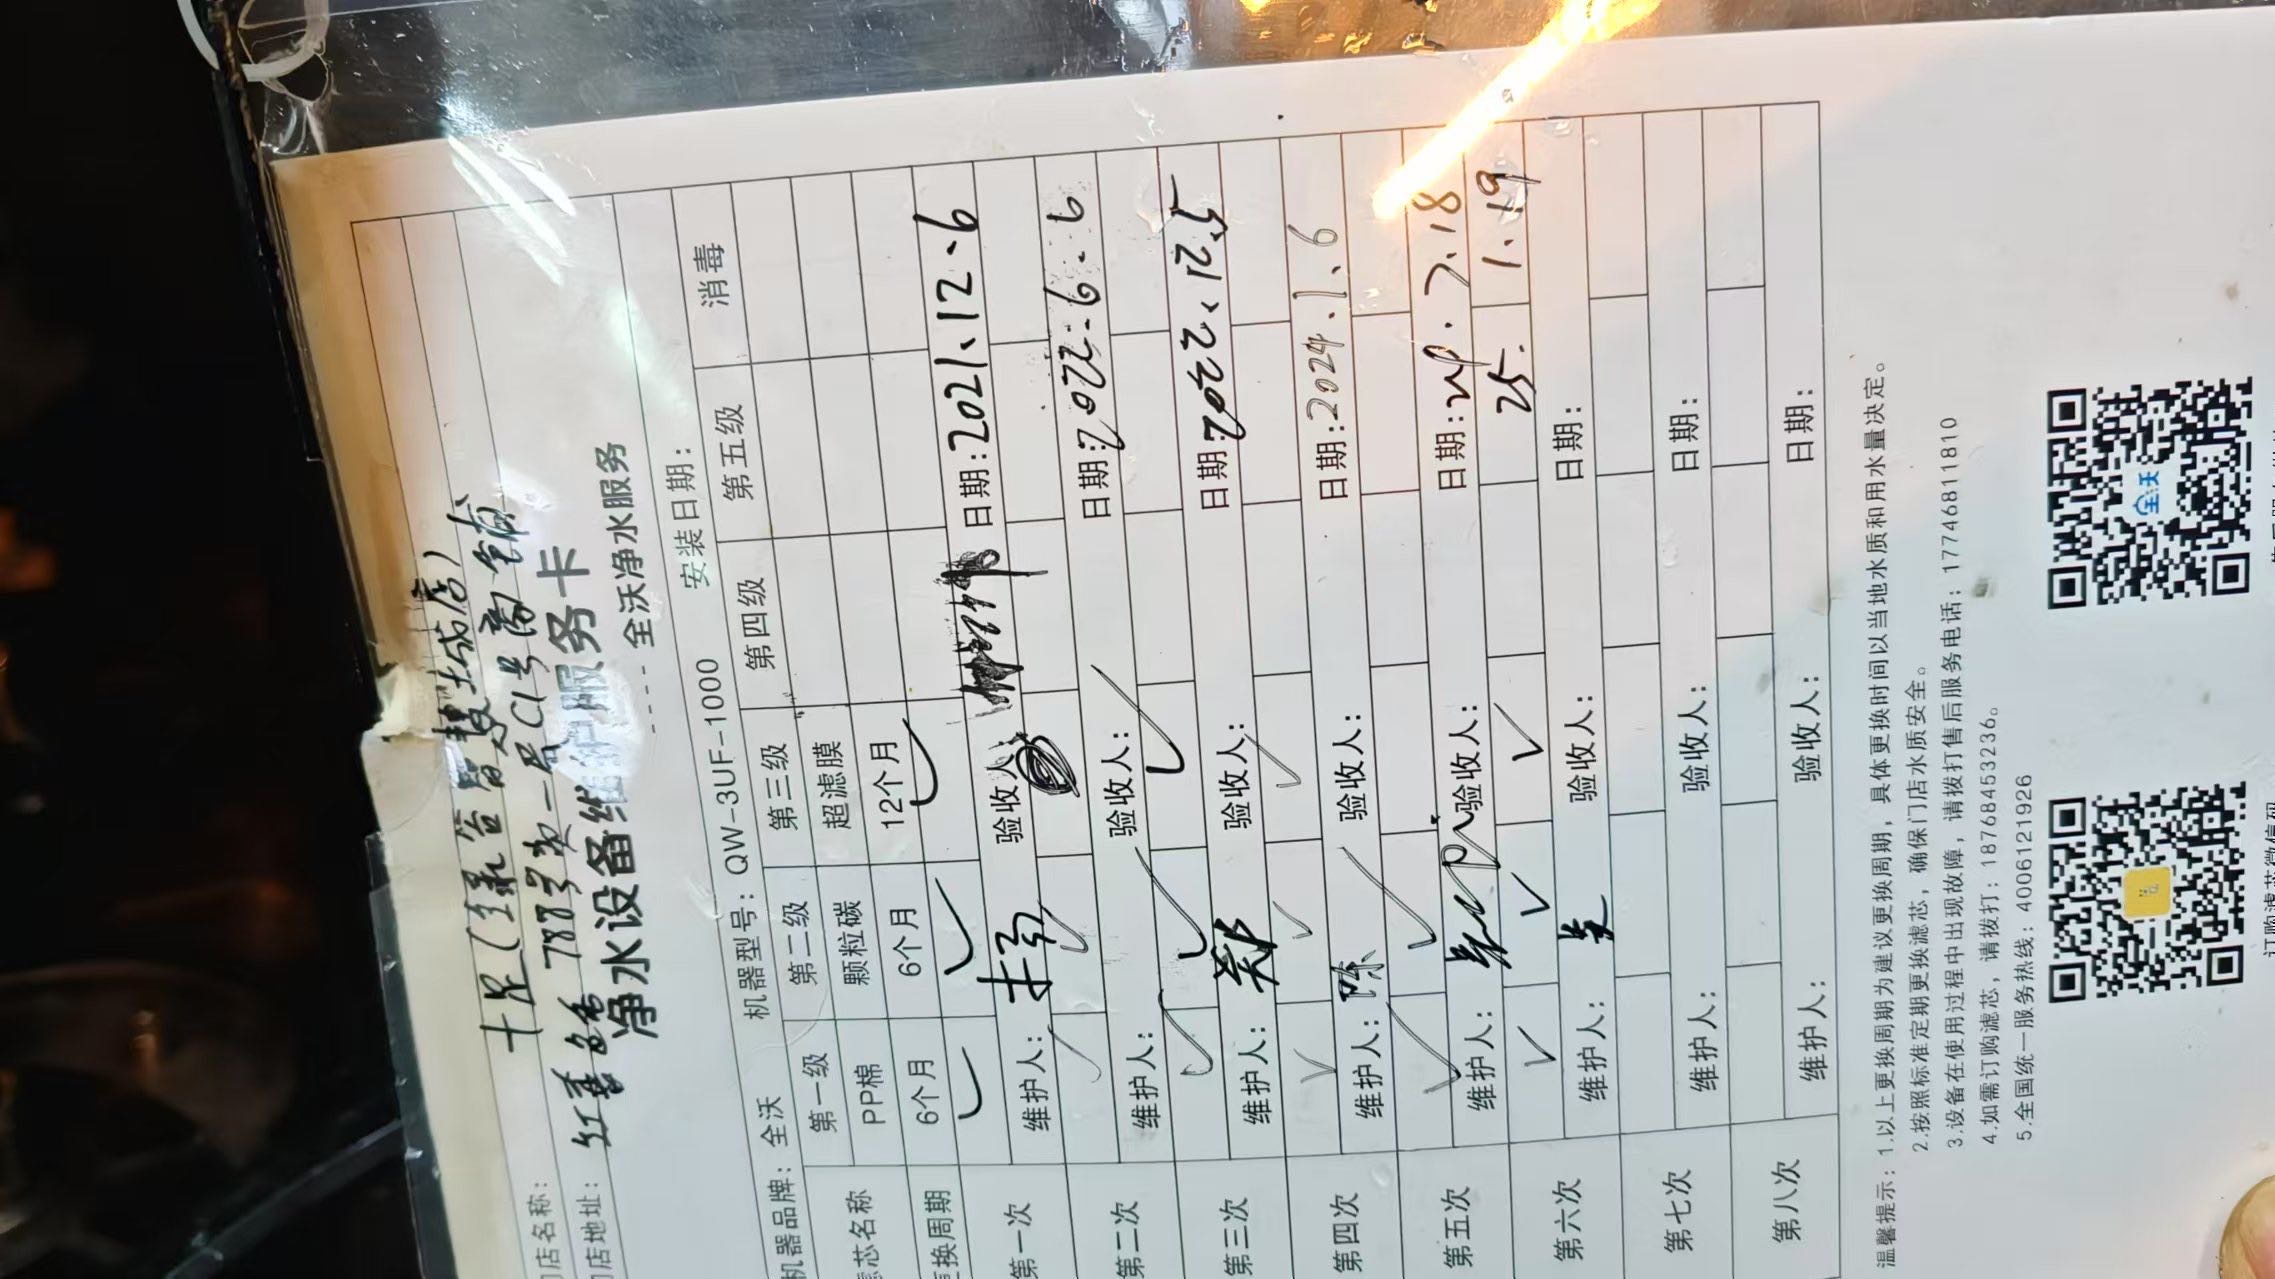 净水设备维护服务卡
全沃净水服务
店名称: 十足(绿谷智慧城店)
店地址: 788号 一层C1号商铺
机器品牌: 全沃 机器型号: QW-3UF-1000 安装日期:
第一级 第二级 第三级 第四级 第五级 消毒
芯名称 PP棉 颗粒碳 超滤膜
换周期 6个月 6个月 12个月
第一次 ✓ ✓ ✓
维护人: 验收人: 日期: 2021.12.6
第二次 ✓ ✓
维护人: 验收人: 日期: 2022.6.6
第三次 ✓ ✓ ✓
维护人: 郑 验收人: 日期: 2022.12.5
第四次 ✓ ✓ ✓
维护人: 陈 验收人: 日期: 2024.1.6
第五次 ✓ ✓
维护人: 吴 验收人: 日期: 24.7.18
第六次 ✓ ✓ ✓ 25.1.19
维护人: 吴 验收人: 日期:
第七次
维护人: 验收人: 日期:
第八次
维护人: 验收人: 日期:
温馨提示: 1.以上更换周期为建议更换周期，具体更换时间以当地水质和用水量决定。
2.按照标准定期更换滤芯，确保门店水质安全。
3.设备在使用过程中出现故障，请拨打售后服务电话: 17746811810
4.如需订购滤芯，请拨打: 18768453236。
5.全国统一服务热线: 4006121926
全沃